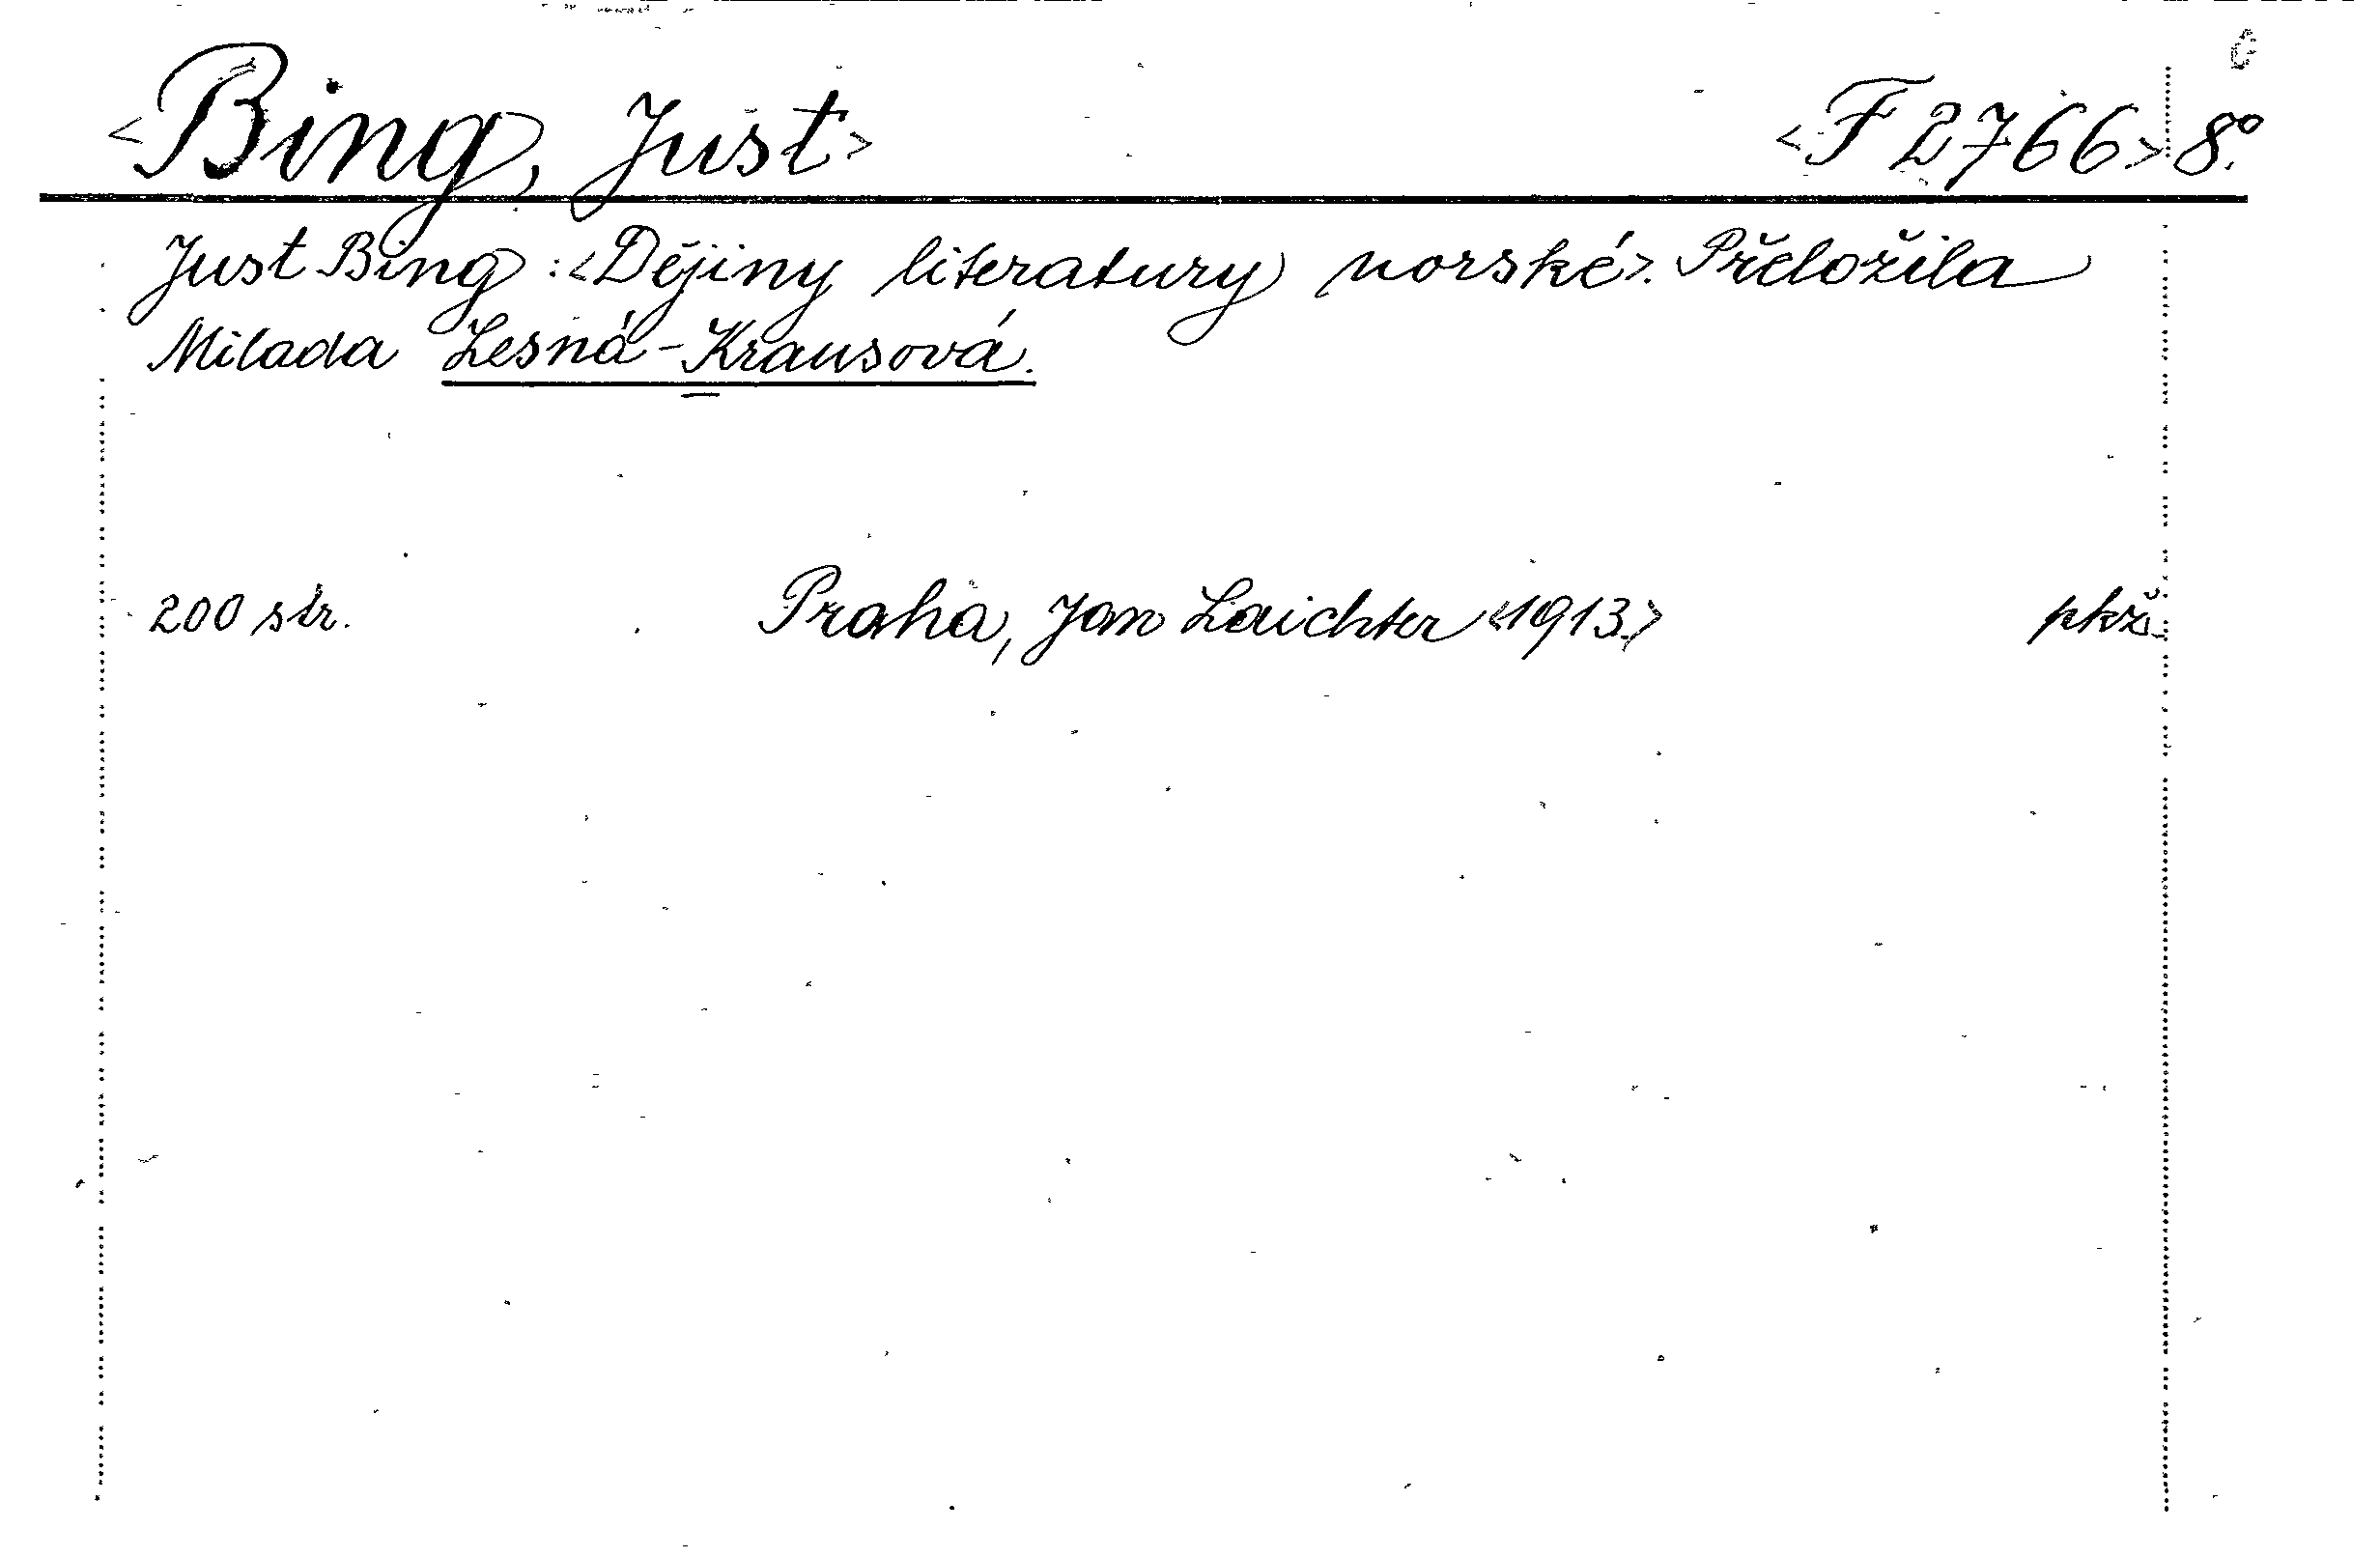 <Bing, Just> <F 2766> 8°.
Just Bing: <Dějiny literatury norské>. Přeložila
Milada Lesná-Krausová.
200 str. Praha, Jan Laichter <1913.> pkž.